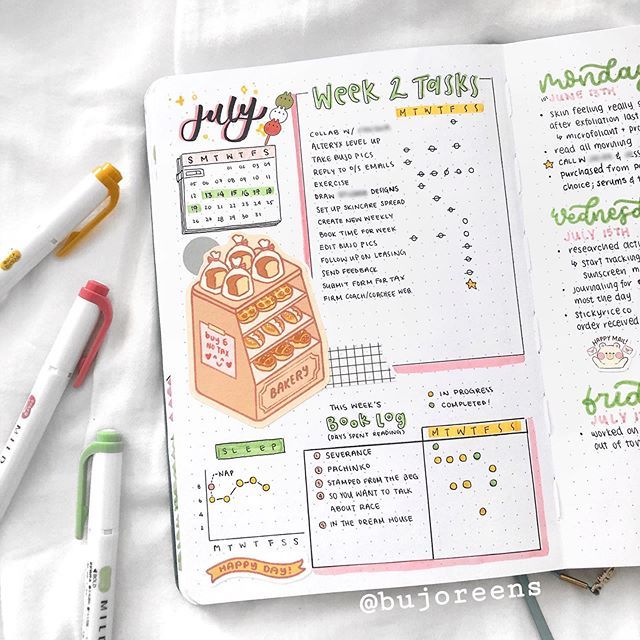 July
S M T W T F S
01 02 03 04
05 06 07 08 09 10 11
12 13 14 15 16 17 18
19 20 21 22 23 24 25
26 27 28 29 30 31
Week 2 Tasks
M T W T F S S
COLLAB W/
ALTERYX LEVEL UP
TAKE BUJO PICS
REPLY TO D/S EMAILS
EXERCISE
DRAW DESIGNS
SET UP SKINCARE SPREAD
CREATE NEW WEEKLY
BOOK TIME FOR WEEK
EDIT BUJO PICS
FOLLOW UP ON LEASING
SEND FEEDBACK
SUBMIT FORM FOR TAX
FIRM COACH/COACHEE WEB
buy 6
NO TAX
BAKERY
SLEEP
NAP
8
6
4
2
M T W T F S S
HAPPY DAY!
THIS WEEK'S
Book Log
(DAYS SPENT READING)
IN PROGRESS
COMPLETED!
M T W T F S S
1 SEVERANCE
2 PACHINKO
3 STAMPED FROM THE BEG
4 SO YOU WANT TO TALK
ABOUT RACE
5 IN THE DREAM HOUSE
monday
JUNE 13TH
• skin feeling really
after exfoliation last
↳ microfoliant +
• read all morning
CALL W/ &
purchased from
choice; serums &
wednes
JULY 15TH
• researched acti
↳ start tracking
sunscreen
• journaling for
most the day
• stickyriceco
order received
HAPPY MAIL!
frid
JULY 1
• worked on
out of to
MILD
MILD
MILD
@bujoreens